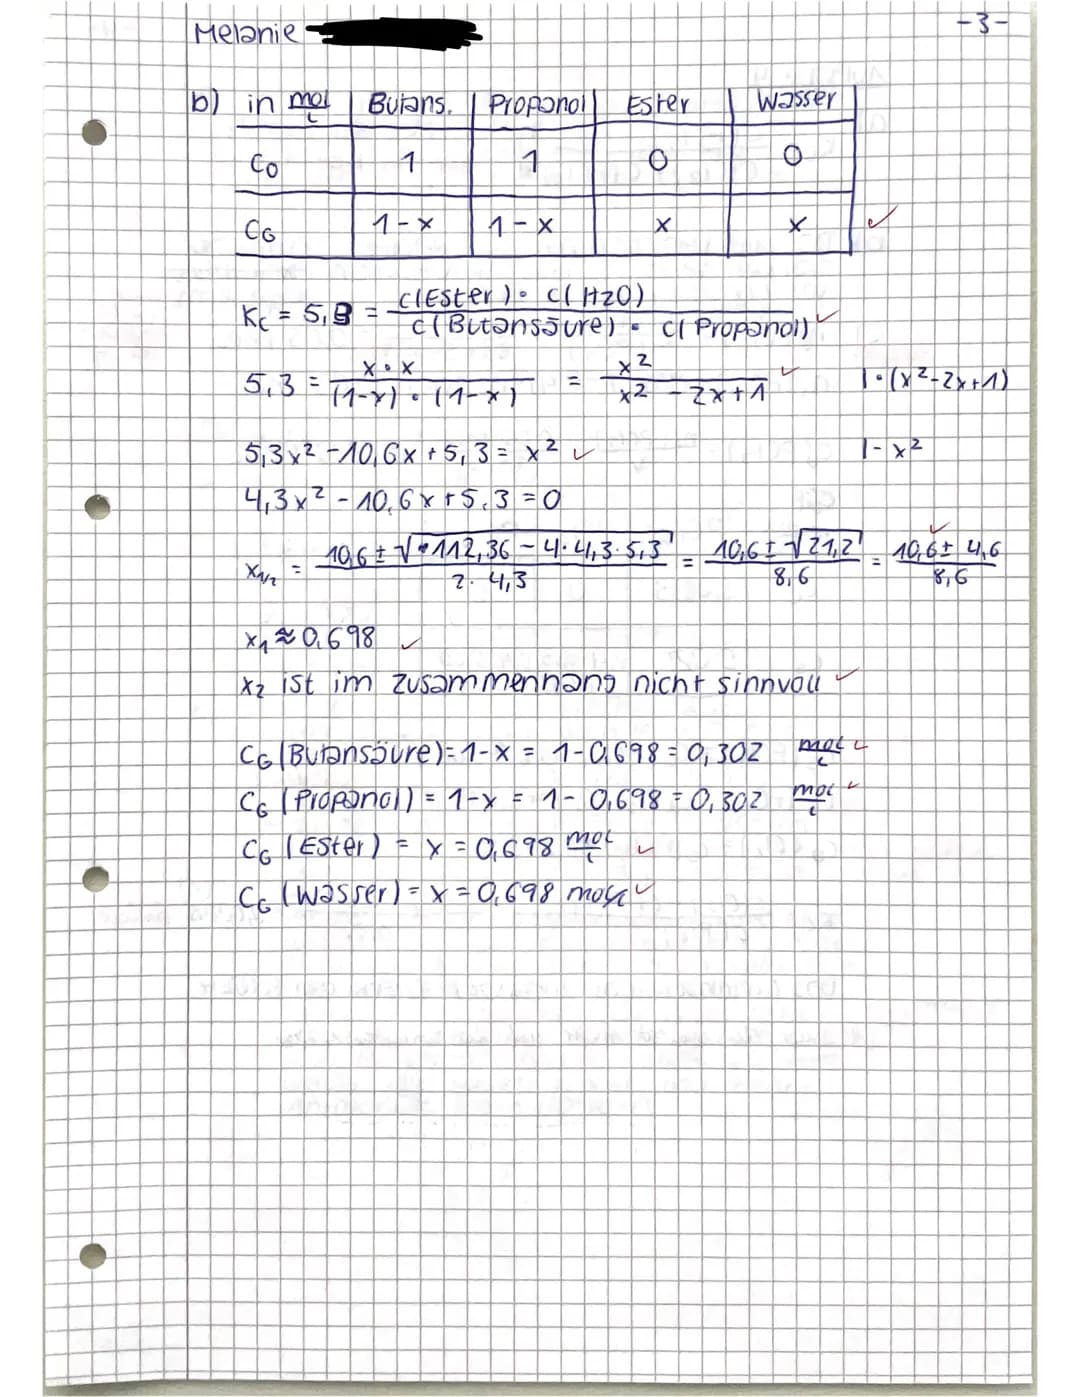 Melanie
-3-
b) in mol/L | Butans. | Propanol | Ester | Wasser
C0 | 1 | 1 | 0 | 0
CG | 1-x | 1-x | x | x ✓
Kc = 5,3 = c(Ester) · c(H2O) / c(Butansäure) · c(Propanol) ✓
5,3 = x · x / (1-x) · (1-x) = x² / x² - 2x+1 ✓ | · (x²-2x+1)
5,3x² - 10,6x + 5,3 = x² ✓ | - x²
4,3x² - 10,6x + 5,3 = 0
x1/2 = 10,6 ± √112,36 - 4 · 4,3 · 5,3 / 2 · 4,3 = 10,6 ± √21,2 / 8,6 = 10,6 ± 4,6 / 8,6 ✓
x1 ≈ 0,698 ✓
x2 ist im zusammenhang nicht sinnvoll ✓
CG (Butansäure) = 1-x = 1-0,698 = 0,302 mol/L ✓
CG (Propanol) = 1-x = 1- 0,698 = 0,302 mol/L ✓
CG (Ester) = x = 0,698 mol/L ✓
CG (Wasser) = x = 0,698 mol/L ✓